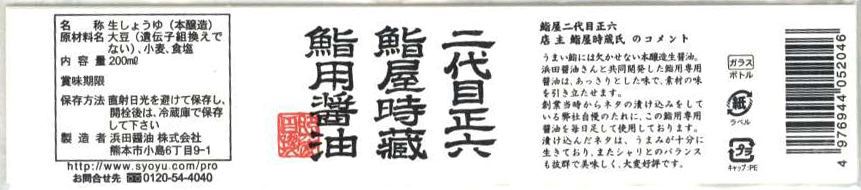 名　称 生しょうゆ（本醸造）
原材料名 大豆（遺伝子組換えで
ない）、小麦、食塩
内　容　量 200mℓ
賞味期限
保存方法 直射日光を避けて保存し、
開栓後は、冷蔵庫で保存
して下さい
製　造　者 浜田醤油 株式会社
熊本市小島6丁目9-1
http://www.syoyu.com/pro
お問合せ先 0120-54-4040
二代目正六
鮨屋時藏
鮨用醤油
鮨屋二代目正六
店主 鮨屋時蔵氏 のコメント
うまい鮨には欠かせない本醸造生醤油。
浜田醤油さんと共同開発した鮨用専用
醤油は、あっさりとした味で、素材の味
を引き立たせます。
創業当時からネタの漬け込みをして
いる弊社自慢のたれに、この鮨用専用
醤油を毎日足して使用しております。
漬け込んだネタは、うまみが十分に
生きており、またシャリとのバランス
も抜群で美味しく、大変好評です。
ガラス
ボトル
紙
ラベル
プラ
キャップ:PE
4976944052046